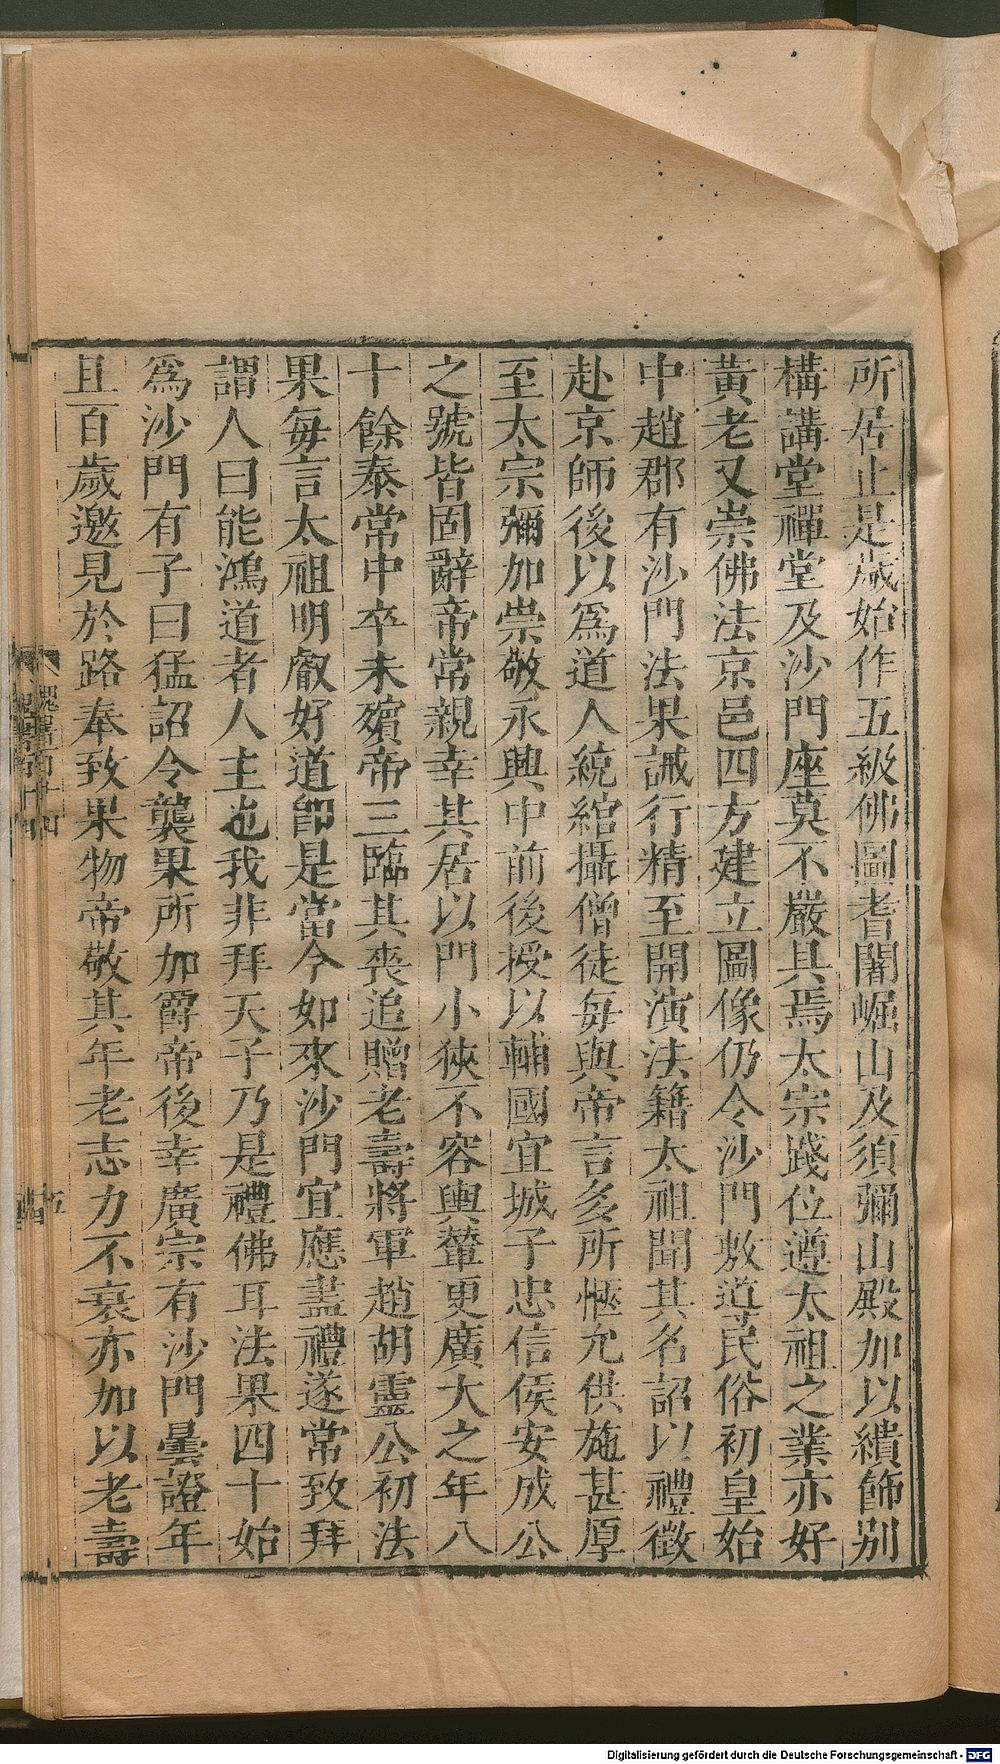 所居止是歲始作五級佛圖耆闍崛山及須彌山殿加以繢飾別
構講堂禪堂及沙門座莫不嚴具焉太宗踐位遵太祖之業亦好
黃老又崇佛法京邑四方建立圖像仍令沙門敷導民俗初皇始
中趙郡有沙門法果誡行精至開演法籍太祖聞其名詔以禮徵
赴京師後以爲道人統綰攝僧徒每與帝言多所愜允供施甚厚
至太宗彌加崇敬永興中前後授以輔國宜城子忠信侯安成公
之號皆固辭帝常親幸其居以門小狹不容輿輦更廣大之年八
十餘泰常中卒未殯帝三臨其喪追贈老壽將軍趙胡靈公初法
果每言太祖明叡好道卽是當今如來沙門宜應盡禮遂常致拜
謂人曰能鴻道者人主也我非拜天子乃是禮佛耳法果四十始
爲沙門有子曰猛詔令襲果所加爵帝後幸廣宗有沙門曇證年
且百歲邀見於路奉致果物帝敬其年老志力不衰亦加以老壽
Digitalisierung gefördert durch die Deutsche Forschungsgemeinschaft - DFG